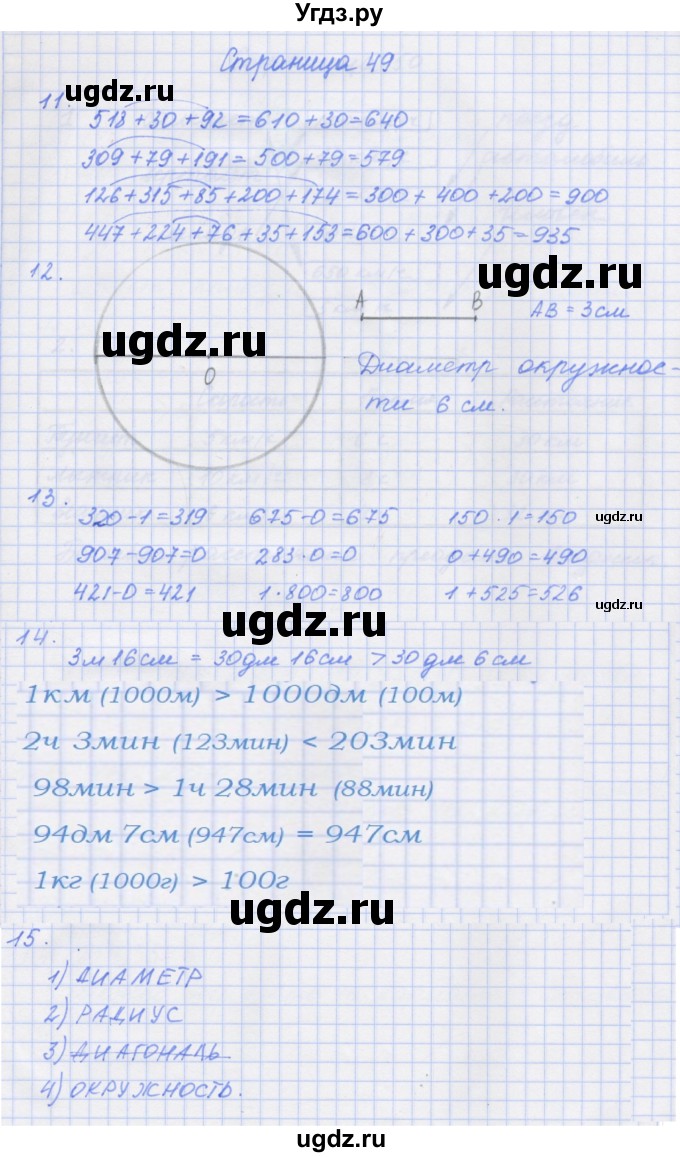 Угдз.ру
Страница 49
ugdz.ru
11. 518+30+92=610+30=640
309+79+191=500+79=579
126+315+85+200+174=300+400+200=900
447+224+76+35+153=600+300+35=935
12.
ugdz.ru
A B AB=3см
ugdz.ru
O
Диаметр окружнос-
ти 6 см.
13.
320-1=319 675-0=675 150·1=150 ugdz.ru
907-907=0 283·0=0 0+490=490
421-0=421 1·800=800 1+525=526 ugdz.ru
14.
ugdz.ru
3м16см = 30дм 16см > 30дм 6см
1км (1000м) > 1000дм (100м)
2ч 3мин (123мин) < 203мин
98мин > 1ч 28мин (88мин)
94дм 7см (947см) = 947см
1кг (1000г) > 100г
ugdz.ru
15.
1) ДИАМЕТР
2) РАДИУС
3) ДИАГОНАЛЬ
4) ОКРУЖНОСТЬ.
ugdz.ru